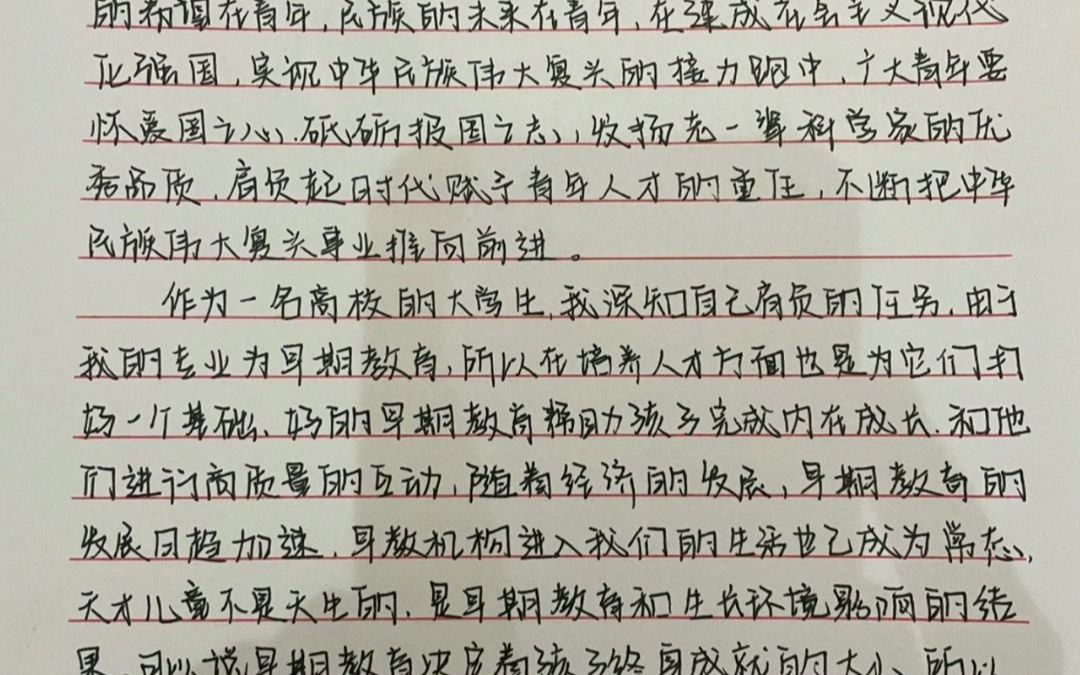 的希望在青年,民族的未来在青年,在建成社会主义现代
化强国,实现中华民族伟大复兴的接力跑中,广大青年要
怀爱国之心,砥砺报国之志,发扬老一辈科学家的优
秀品质,肩负起时代赋予青年人才的重任,不断把中华
民族伟大复兴事业推向前进。
作为一名高校的大学生,我深知自己肩负的任务,由于
我的专业为早期教育,所以在培养人才方面也是为它们打
好一个基础、好的早期教育帮助孩子完成内在成长,和他
们进行高质量的互动,随着经济的发展,早期教育的
发展日趋加速,早教机构进入我们的生活也已成为常态,
天才儿童不是天生的,是早期教育和生长环境影响的结
果,可以说早期教育决定着孩子终身成就的大小、所以